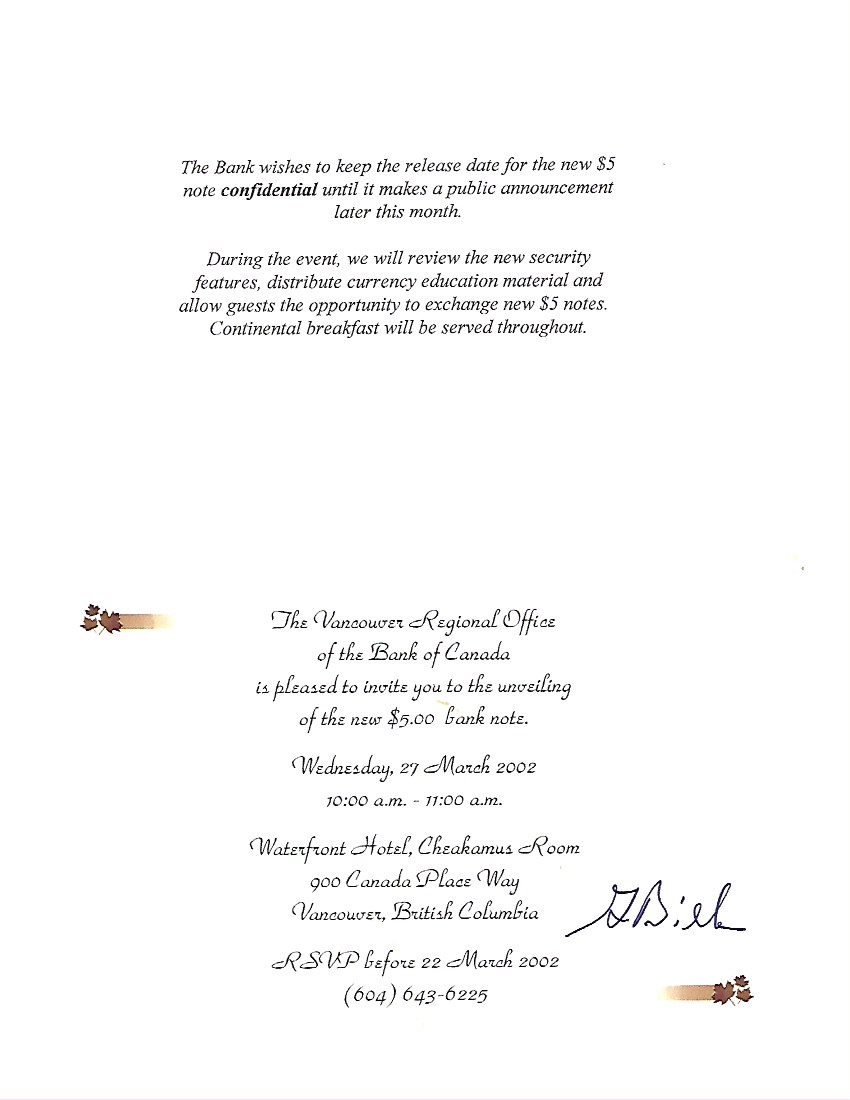 The Bank wishes to keep the release date for the new $5
note confidential until it makes a public announcement
later this month.
During the event, we will review the new security
features, distribute currency education material and
allow guests the opportunity to exchange new $5 notes.
Continental breakfast will be served throughout.
The Vancouver Regional Office
of the Bank of Canada
is pleased to invite you to the unveiling
of the new $5.00 bank note.
Wednesday, 27 March 2002
10:00 a.m. - 11:00 a.m.
Waterfront Hotel, Cheakamus Room
900 Canada Place Way
Vancouver, British Columbia
RSVP before 22 March 2002
(604) 643-6225